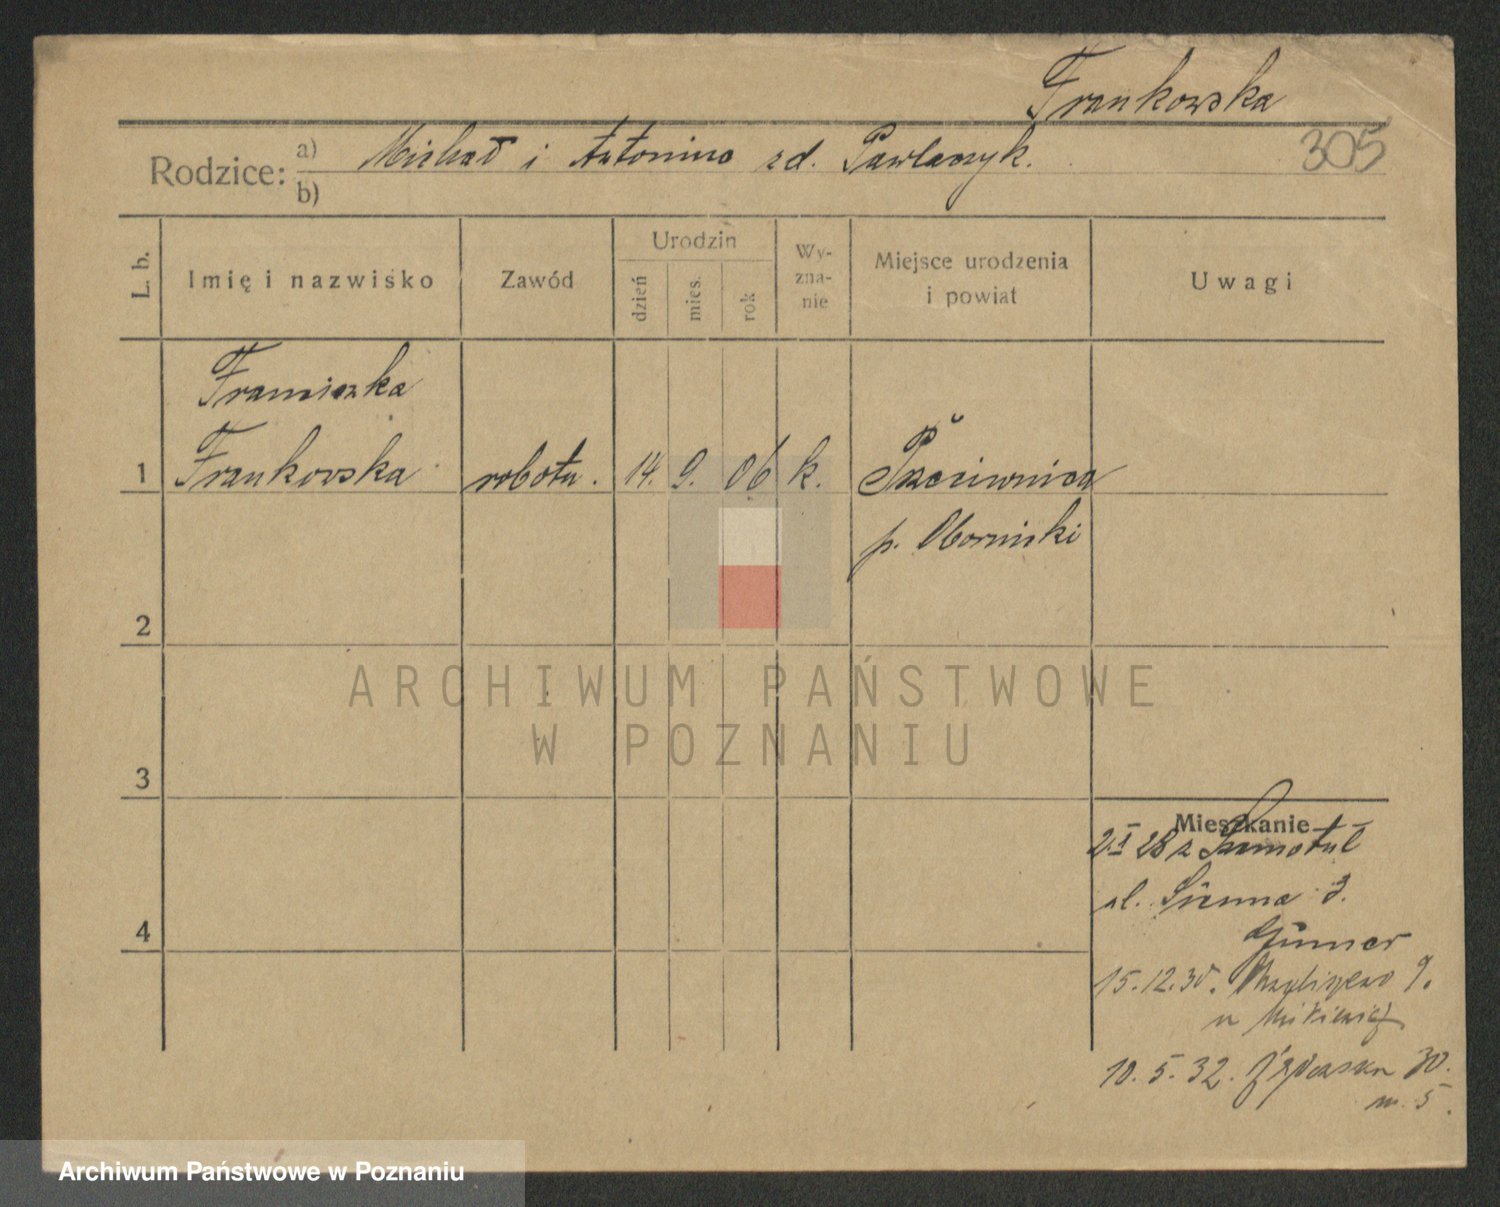 Frankowska
305
Rodzice: a) Michał i Antonina zd. Pawlaczyk.
b)
L. b.
Imię i nazwisko
Zawód
Urodzin
dzień
mies.
rok
Wy-
zna-
nie
Miejsce urodzenia
i powiat
Uwagi
Franciszka
1 Frankowska robotn. 14. 9. 06 k. Pacierwnica
p. Obornicki
2
3
4
Mieszkanie
2.I 28 z Szamotuł
ul. Sienna 3.
15.12.30.
10. 5. 32. 30.
m. 5.
ARCHIWUM PAŃSTWOWE
W POZNANIU
Archiwum Państwowe w Poznaniu